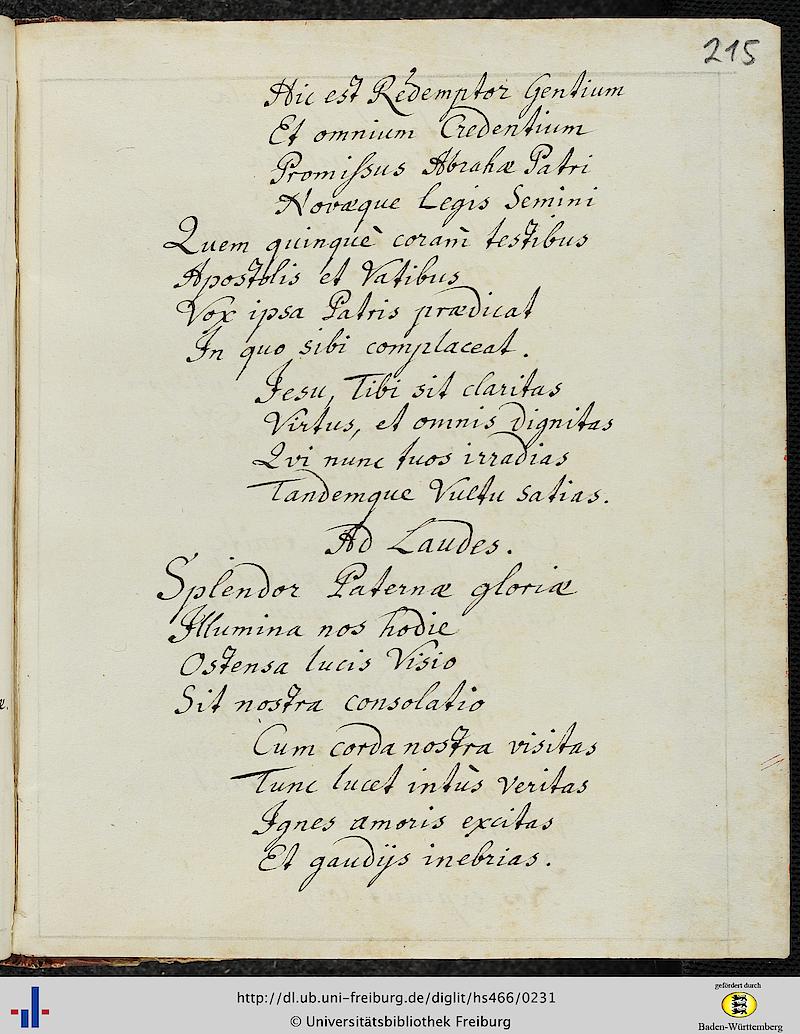 215
Hic est Redemptor Gentium
Et omnium Credentium
Promiſsus Abrahæ Patri
Novæque Legis Semini
Quem quinquè coram̀ testibus
Apostolis et Vatibus
Vox ipsa Patris prædicat
In quo sibi complaceat.
Jesu, Tibi sit claritas
Virtus, et omnis dignitas
Qvi nunc tuos irradias
Tandemque Vultu satias.
Ad Laudes.
Splendor Paternæ gloriæ
Illumina nos hodie
Ostensa lucis Visio
Sit nostra consolatio
Cum corda nostra visitas
Tunc lucet intùs veritas
Ignes amoris excitas
Et gaudijs inebrias.
http://dl.ub.uni-freiburg.de/diglit/hs466/0231
© Universitätsbibliothek Freiburg
gefördert durch
Baden-Württemberg